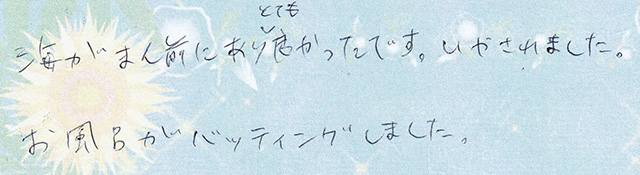 とても
海がまん前にあり良かったです。いやされました。
お風呂がバッティングしました。